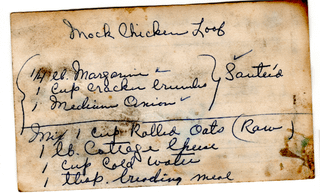 Mock Chicken Loaf
1/4 lb. Margarine
1 cup cracker crumbs } Sauteéd
1 Medium Onion
Mix 1 cup Rolled Oats (Raw)
1 lb. Cottage Cheese
1 cup cold water
1 tbsp. breading meal